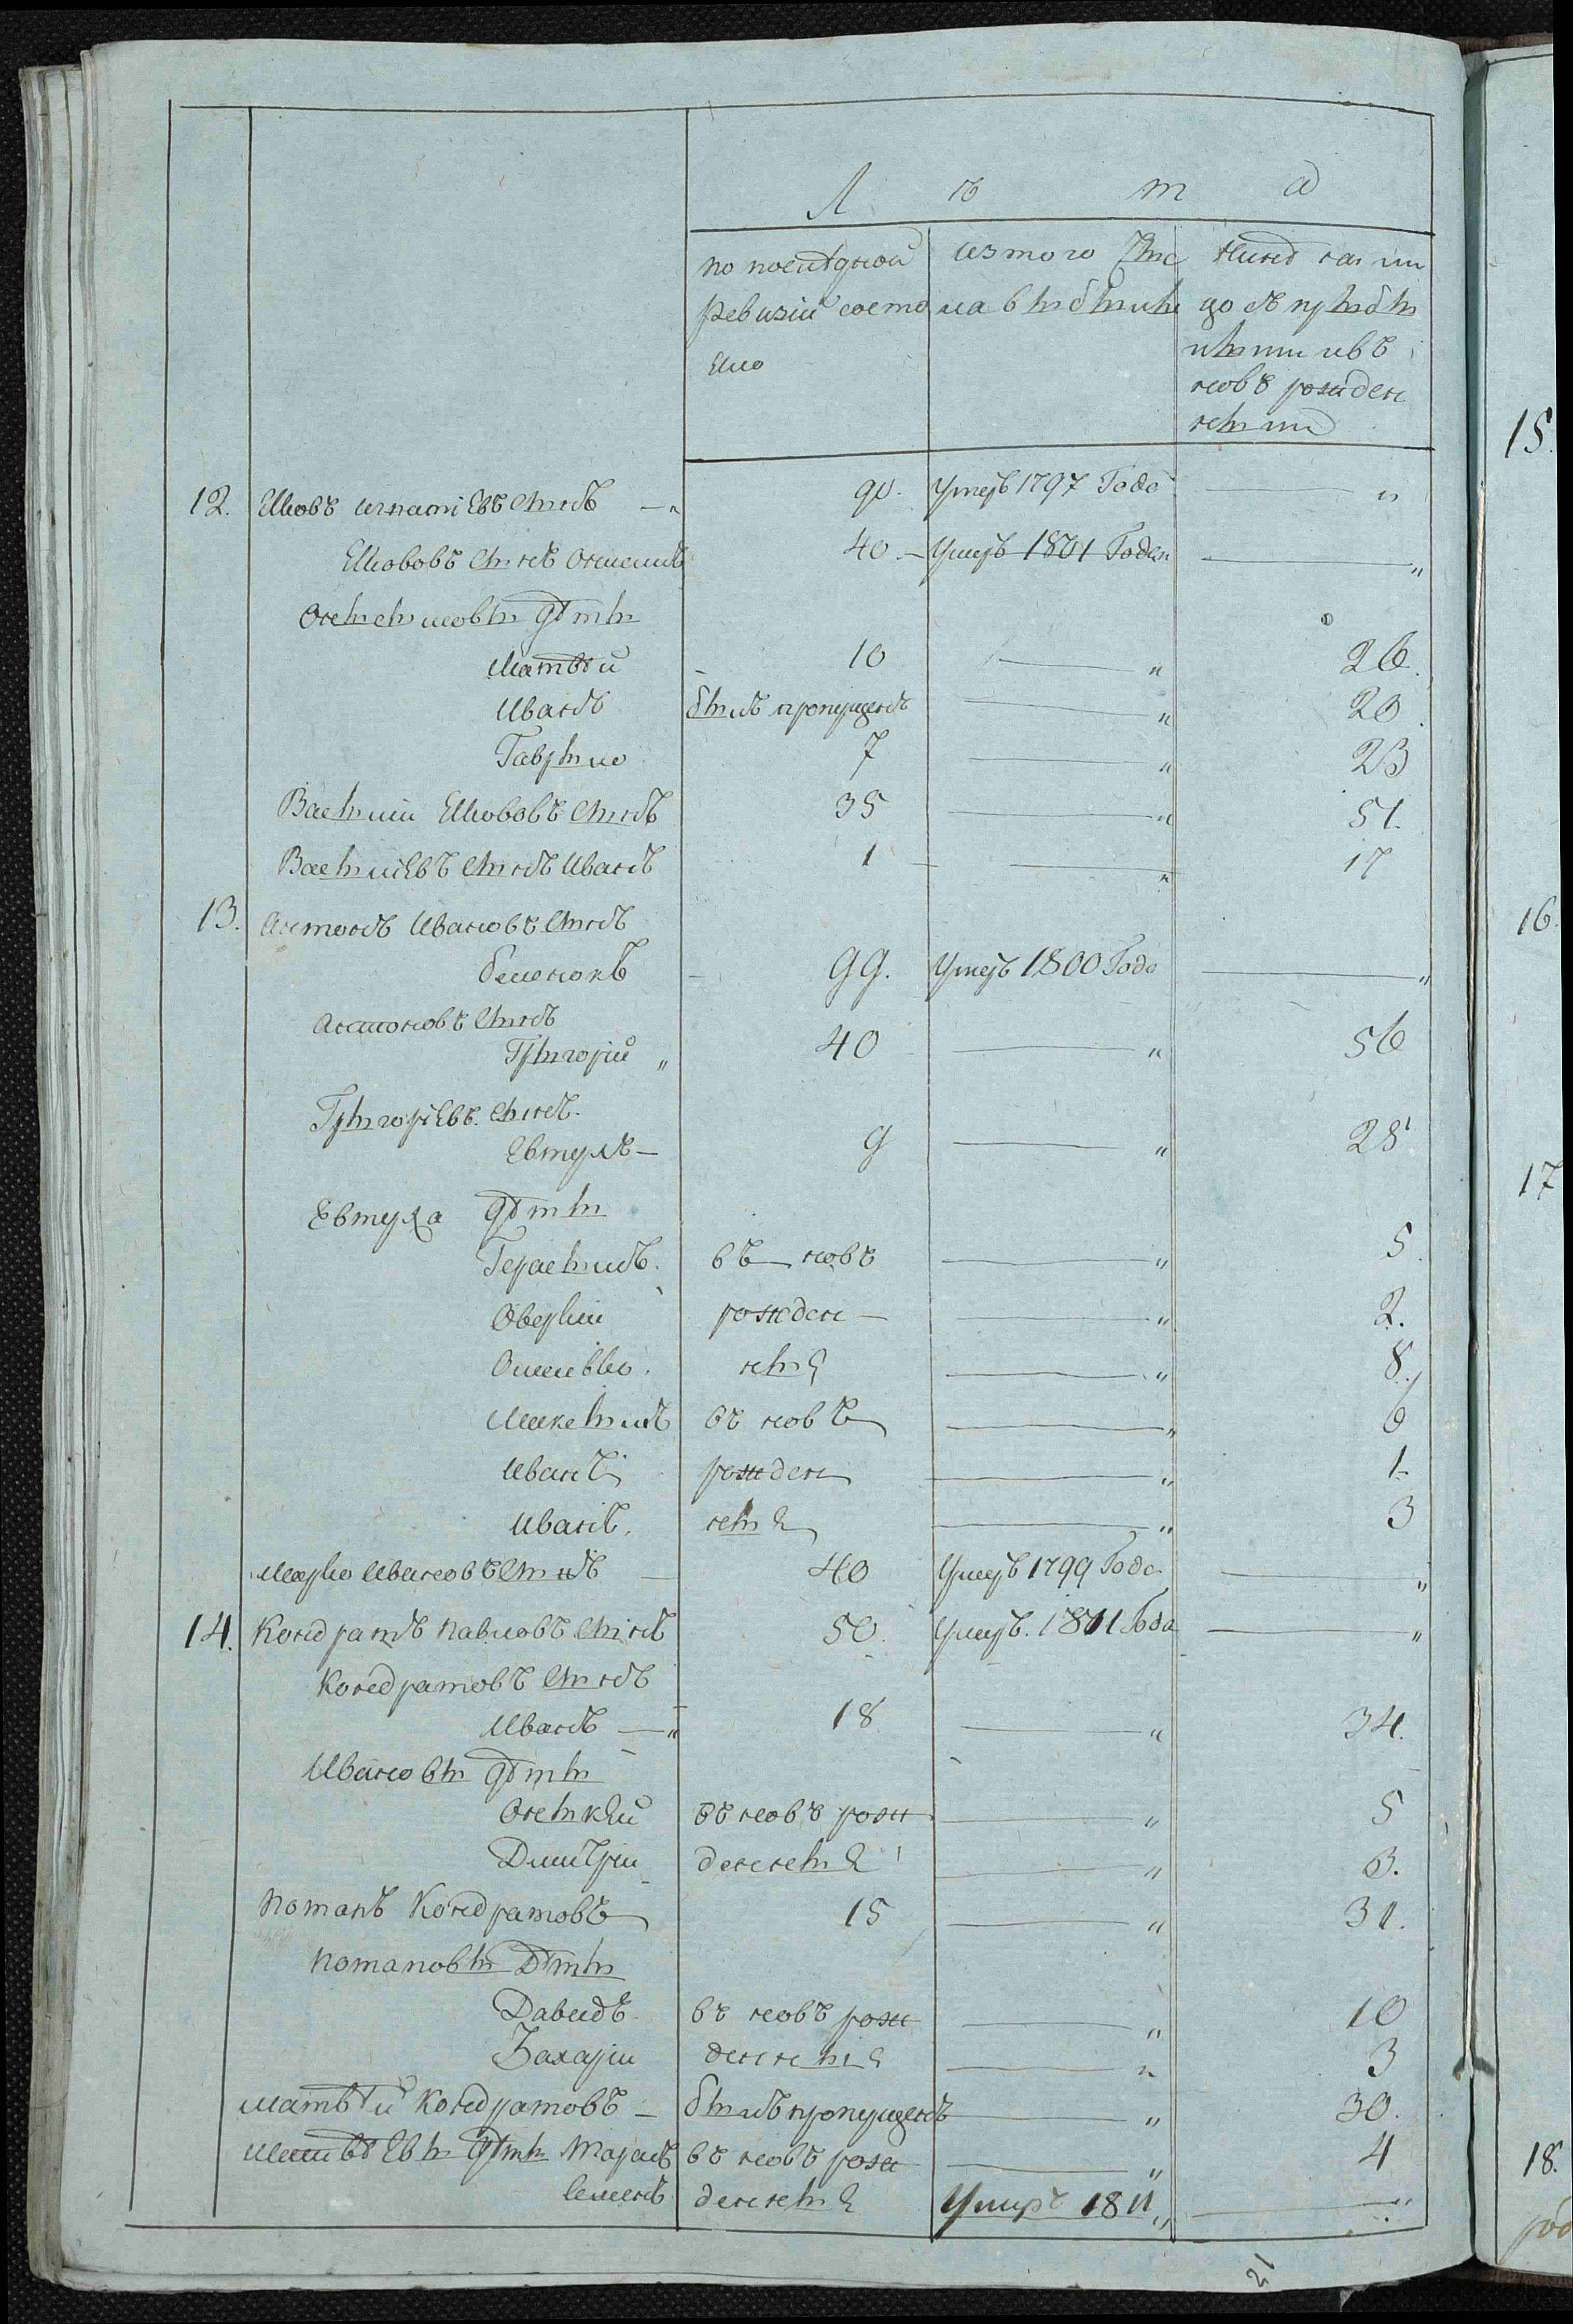 Л ѣ т а
по последной ревизіи состояло
изъ того числа выбыли
нынѣ на лицо съ прибылыми и въ новѣ рожденными
12. Яковъ Игнатіевъ Сынъ — 90. Умеръ 1797 Года — "
Яковвовъ Сынъ Онисимъ 40 — Умеръ 1801 Года — "
Онисимовы дѣти
Матвѣй 10 — " 26.
Иванъ былъ пропущенъ — " 20.
Гаврыло 7 — " 23
Василій Яковвовъ Сынъ 35 — " 51.
Василіевъ Сынъ Иванъ 1 — " 17
13. Антонъ Ивановъ Сынъ
99. Умеръ 1800 Года — "
Антоновъ Сынъ
Григорій " 40 — " 56
Григоріевъ. Сынъ.
Евтухъ — 9 — " 25
Евтуха дѣти
Герасимъ. въ новѣ — " 5.
Оверкій рожден — " 2.
ные — " 8.
Максимъ въ новѣ — " 6
Иванъ рожден — " 1.
Иванъ. ные — " 3
Марко Ивановъ Сынъ — 40 Умеръ 1799 Года — "
14. Кондратъ Павловъ Сынъ 50. Умеръ. 1801 Года — "
Кондратовъ Сынъ
Иванъ — " 18 — " 34.
Ивановы дѣти
въ новѣ рож — " 5
Димитрій денные — " 3.
Потапъ Кондратовъ 15 — " 31.
Потаповы Дѣти
Давидъ. въ новѣ рож — " 10
Захарій денные — " 3
Матвѣй Кондратовъ — былъ пропущенъ — " 30.
Матвѣевы дѣти Тарасъ въ новѣ рож — " 4
Семенъ денные Умиръ 1811 " — "
21
15.
16.
17
18.